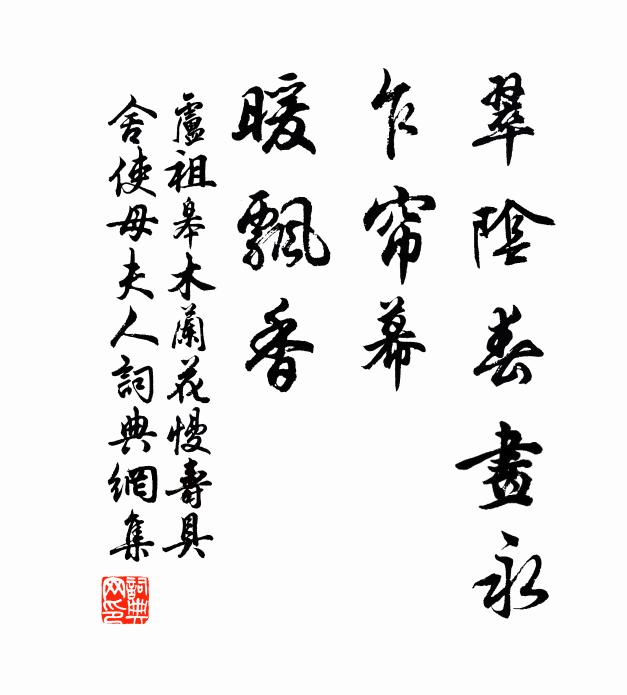 翠陰春晝永
乍帘幕
暖飄香
盧祖皋木蘭花慢壽具
舍使母夫人詞典網集
詞典
网印